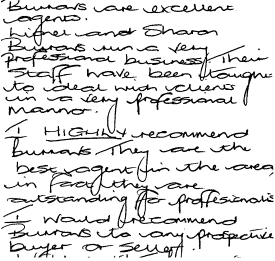 Burrows are excellent
agents.
Lionel and Sharon
Burrows run a very
professional business. Their
staff have been taught
to deal with clients
in a very professional
mannor.
I HIGHLY recommend
Burrows. They are the
best agent in the area,
in fact they are
outstanding for proffesionalism
I would recommend
Burrows to any prospective
buyer or seller.